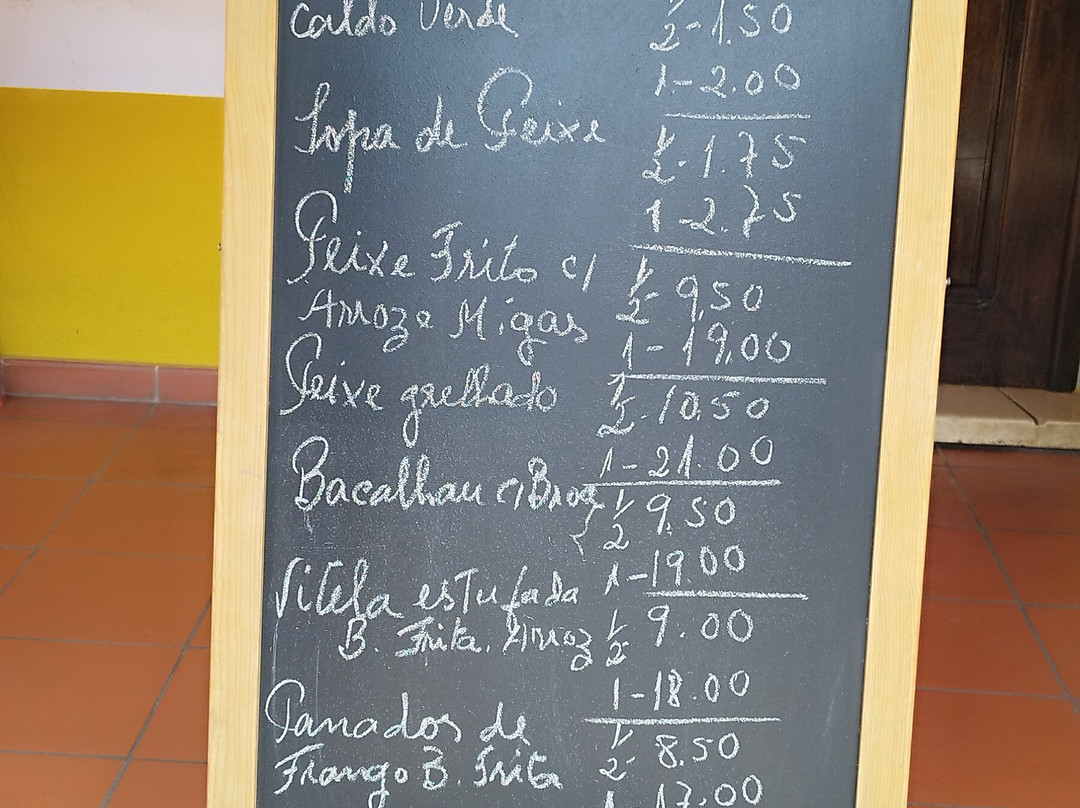 Caldo Verde 1/2 - 1.50
1 - 2.00
Sopa de Peixe 1/2 - 1.75
1 - 2.75
Peixe Frito c/ 1/2 - 9,50
Arroz e Migas 1 - 19,00
Peixe grelhado 1/2 - 10.50
1 - 21.00
Bacalhau c/ Broa 1/2 9.50
1 - 19.00
Vitela estufada
B. Frita. Arroz 1/2 9.00
1 - 18.00
Panados de
Frango B. Frita 1/2 - 8.50
1 - 17.00